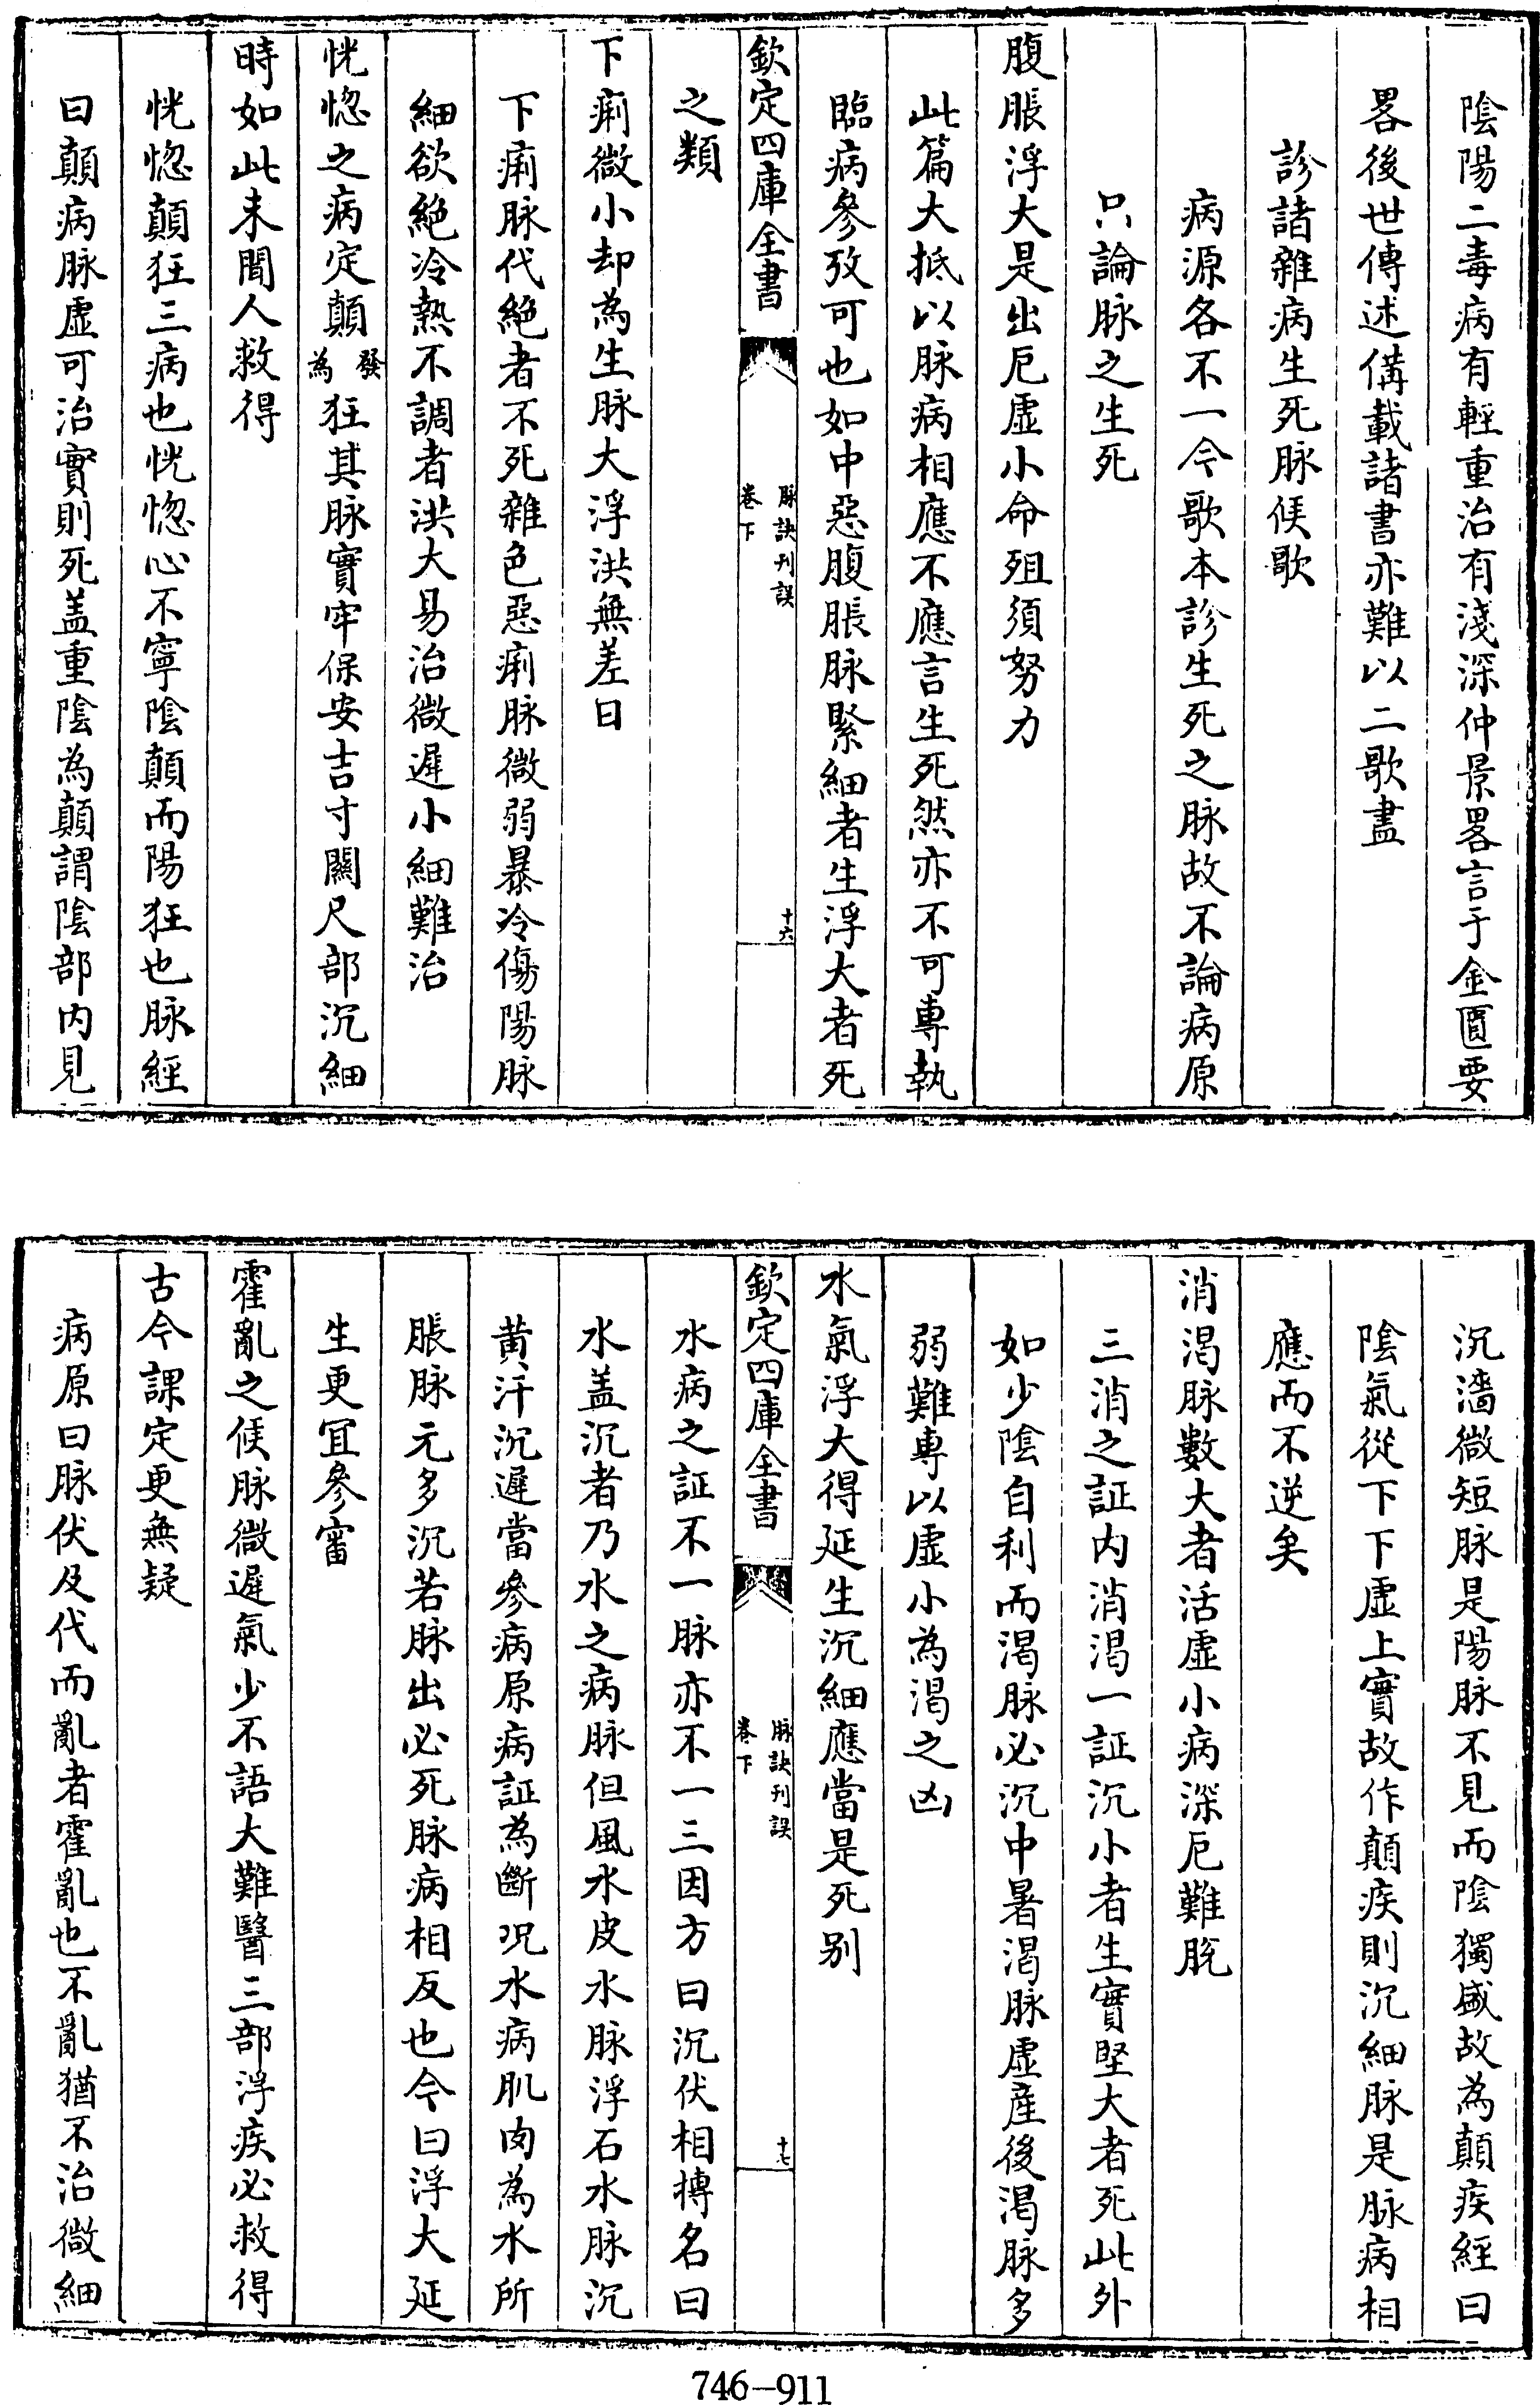 陰陽二毒病有輕重治有淺深仲景畧言于金匱要
畧後世傳述備載諸書亦難以二歌盡
診諸雜病生死脉候歌
病源各不一今歌本診生死之脉故不論病原
只論脉之生死
腹脹浮大是出厄虛小命殂須努力
此篇大抵以脉病相應不應言生死然亦不可專執
臨病參攷可也如中惡腹脹脉緊細者生浮大者死
欽定四庫全書
脉訣刋誤
卷下
十六
之類
下痢微小却為生脉大浮洪無差日
下痢脉代絶者不死雜色惡痢脉微弱暴冷傷陽脉
細欲絶冷熱不調者洪大易治微遲小細難治
恍惚之病定顛發為狂其脉實牢保安吉寸關尺部沉細
時如此未聞人救得
恍惚顛狂三病也恍惚心不寧陰顛而陽狂也脉經
曰顛病脉虛可治實則死盖重陰為顛謂陰部内見
沉濇微短脉是陽脉不見而陰獨盛故為顛疾經曰
陰氣從下下虛上實故作顛疾則沉細脉是脉病相
應而不逆矣
消渴脉數大者活虛小病深厄難脫
三消之証内消渴一証沉小者生實堅大者死此外
如少陰自利而渴脉必沉中暑渴脉虛産後渴脉多
弱難專以虛小為渴之凶
水氣浮大得延生沉細應當是死别
欽定四庫全書
脉訣刋誤
卷下
十七
水病之証不一脉亦不一三因方曰沉伏相搏名曰
水盖沉者乃水之病脉但風水皮水脉浮石水脉沉
黄汗沉遲當參病原病証為斷况水病肌肉為水所
脹脉元多沉若脉出必死脉病相反也今曰浮大延
生更宜參審
霍亂之候脉微遲氣少不語大難醫三部浮疾必救得
古今課定更無疑
病原曰脉伏及代而亂者霍亂也不亂猶不治微細
746-911